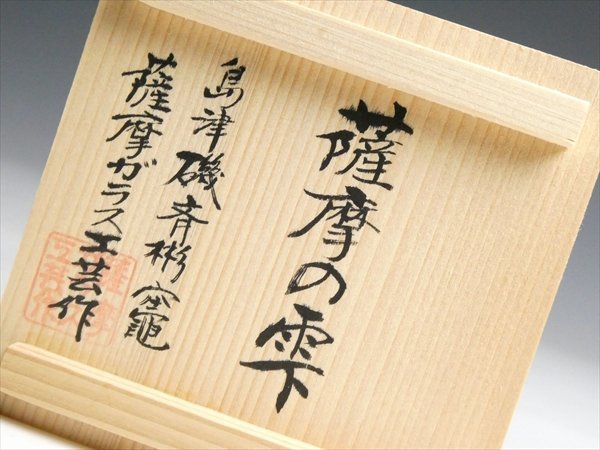 薩摩の雫
島津磯斉彬竈
薩摩ガラス工芸作